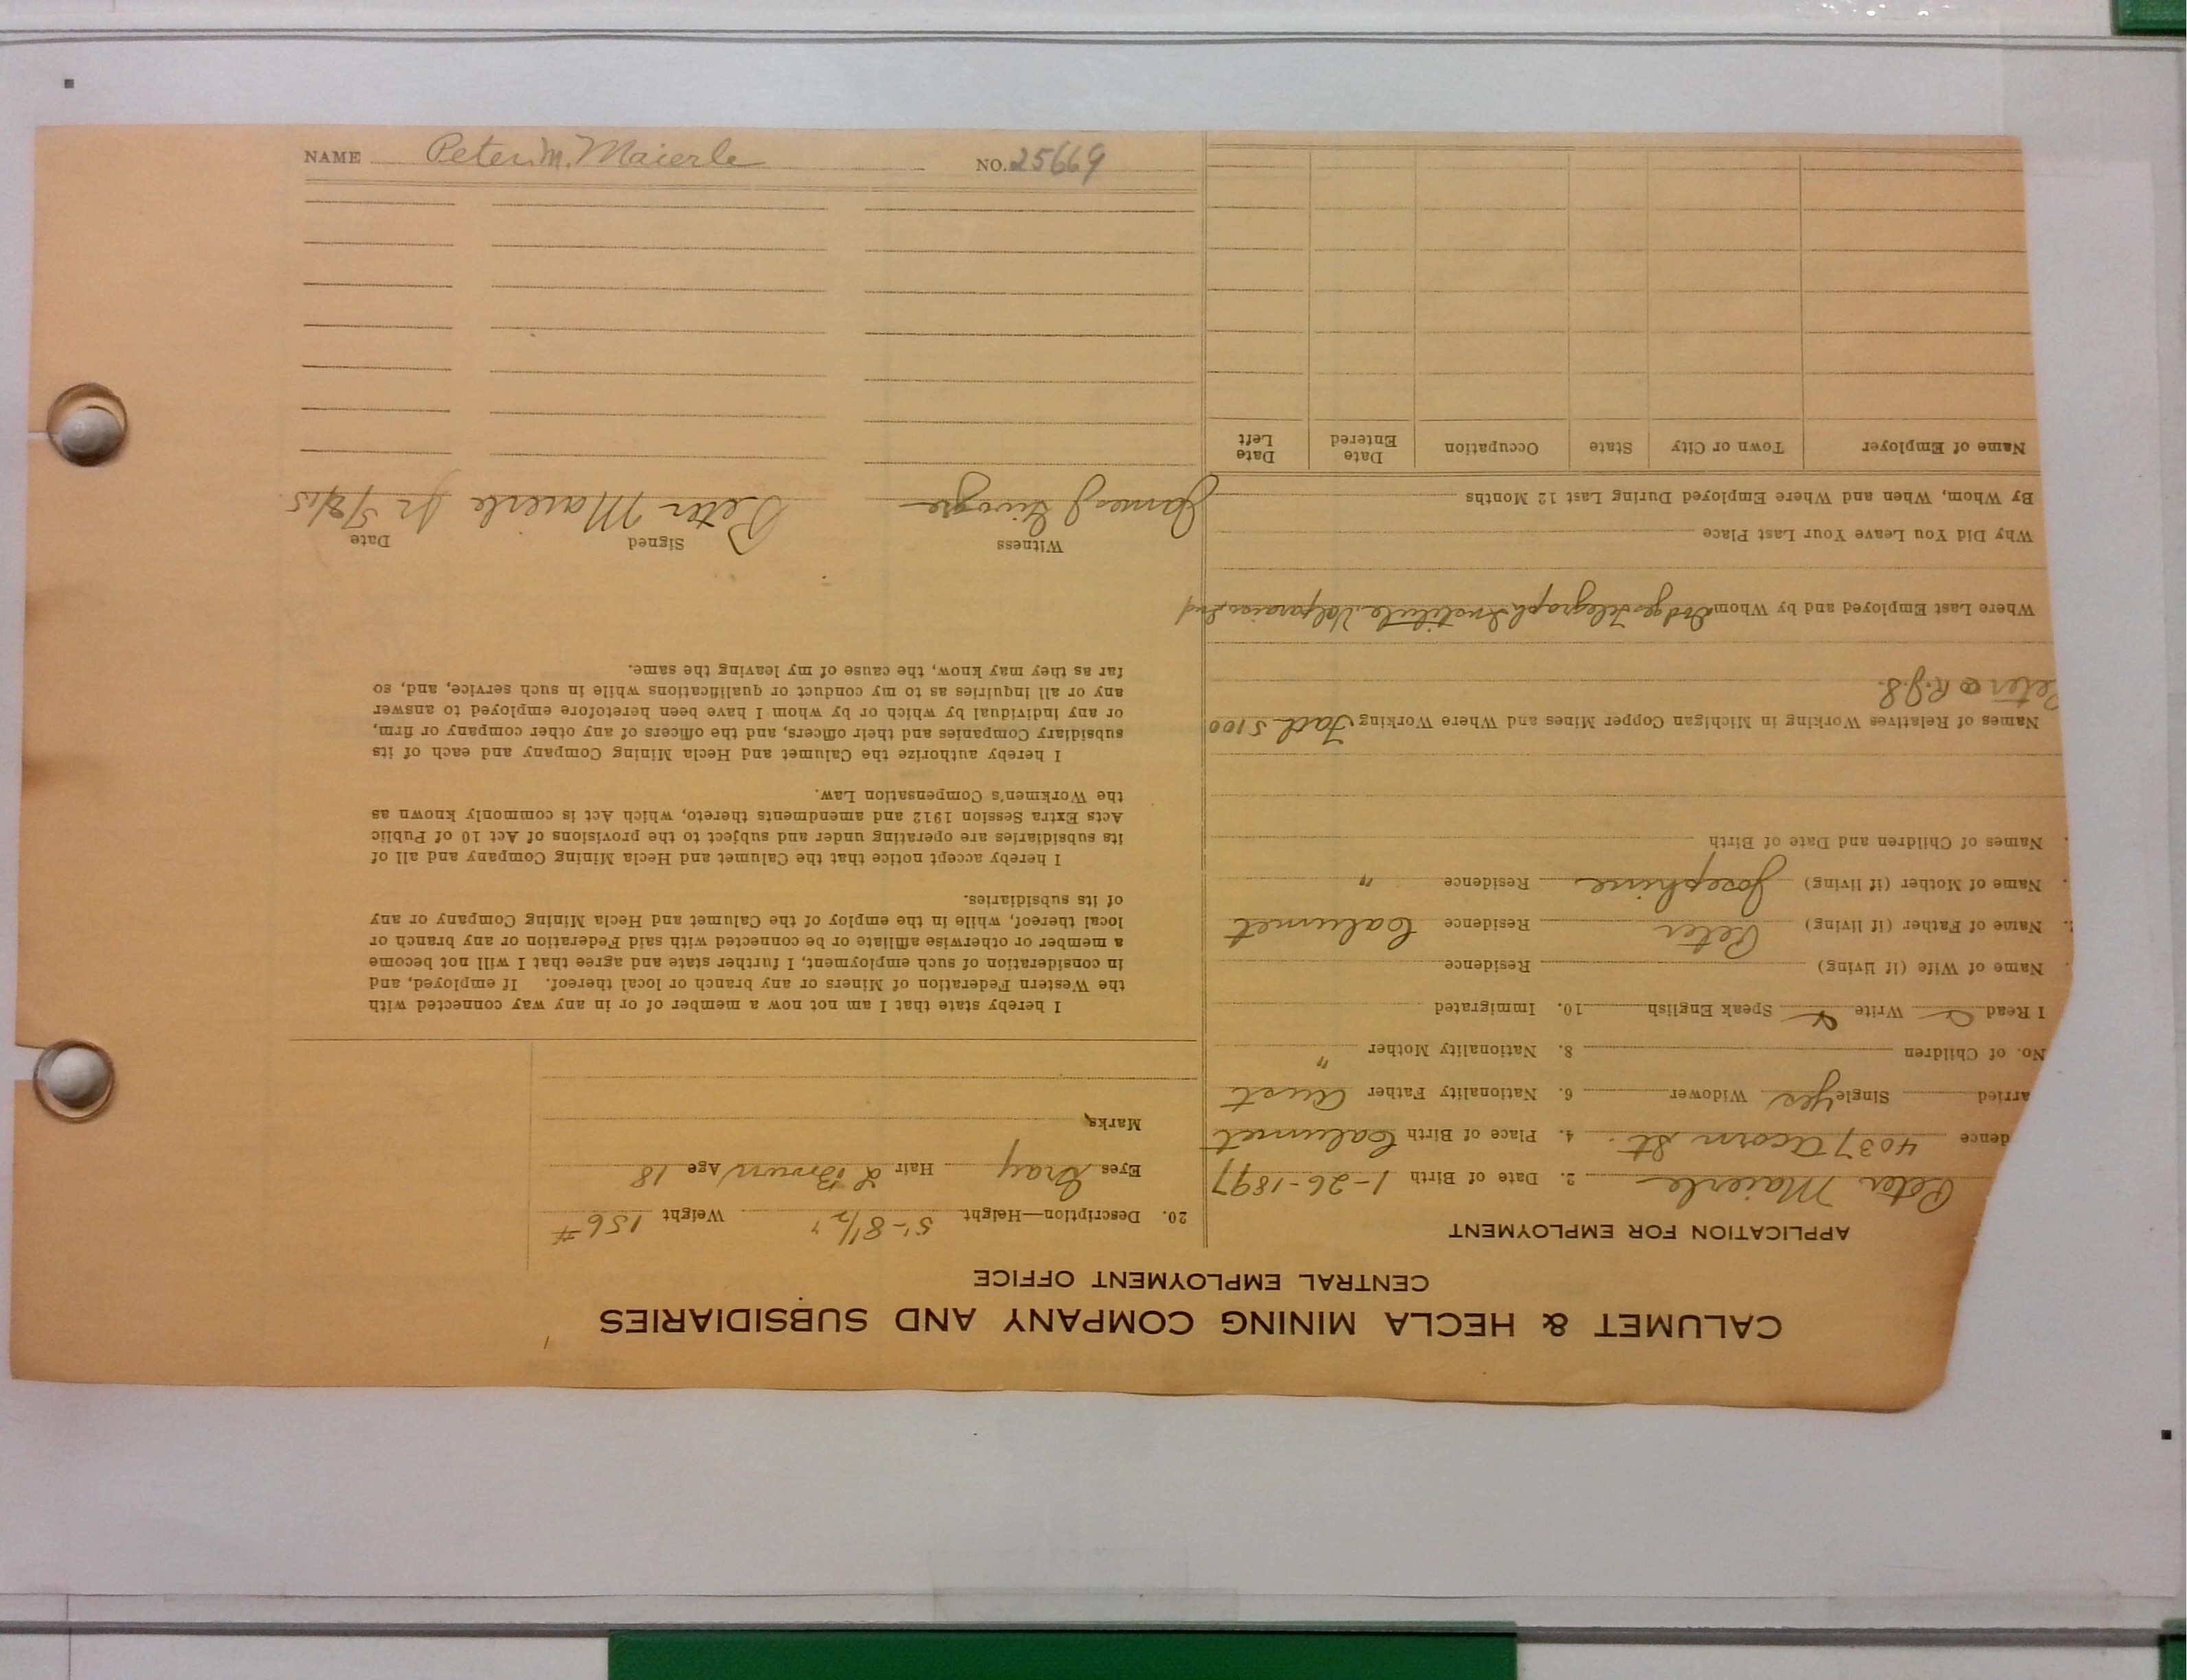 NAME Peter M. Maierle NO. 25669
CALUMET & HECLA MINING COMPANY AND SUBSIDIARIES
CENTRAL EMPLOYMENT OFFICE
APPLICATION FOR EMPLOYMENT
Peter Maierle 2. Date of Birth 1-26-1897
dence 4037 Acorn St. 4. Place of Birth Calumet
arried Single yes Widower 6. Nationality Father Aust
No. of Children 8. Nationality Mother "
I Read Write Speak English 10. Immigrated
Name of Wife (if living) Residence
Name of Father (if living) Peter Residence Calumet
Name of Mother (if living) Josephine Residence "
Names of Children and Date of Birth
Names of Relatives Working in Michigan Copper Mines and Where Working Fath 5100
Peter R.J.S.
Where Last Employed and by Whom Dodges Telegraph Institute Valparaiso Ind
Why Did You Leave Your Last Place
By Whom, When and Where Employed During Last 12 Months
Name of Employer Town or City State Occupation Date Entered Date Left
20. Description—Height 5'-8 1/2" Weight 156 #
Eyes Gray Hair L Brown Age 18
Marks
I hereby state that I am not now a member of or in any way connected with
the Western Federation of Miners or any branch or local thereof. If employed, and
in consideration of such employment, I further state and agree that I will not become
a member or otherwise affiliate or be connected with said Federation or any branch or
local thereof, while in the employ of the Calumet and Hecla Mining Company or any
of its subsidiaries.
I hereby accept notice that the Calumet and Hecla Mining Company and all of
its subsidiaries are operating under and subject to the provisions of Act 10 of Public
Acts Extra Session 1912 and amendments thereto, which Act is commonly known as
the Workmen's Compensation Law.
I hereby authorize the Calumet and Hecla Mining Company and each of its
subsidiary Companies and their officers, and the officers of any other company or firm,
or any individual by which or by whom I have been heretofore employed to answer
any or all inquiries as to my conduct or qualifications while in such service, and, so
far as they may know, the cause of my leaving the same.
Witness Signed Date
James J Peter Maierle Jr 5/8/15